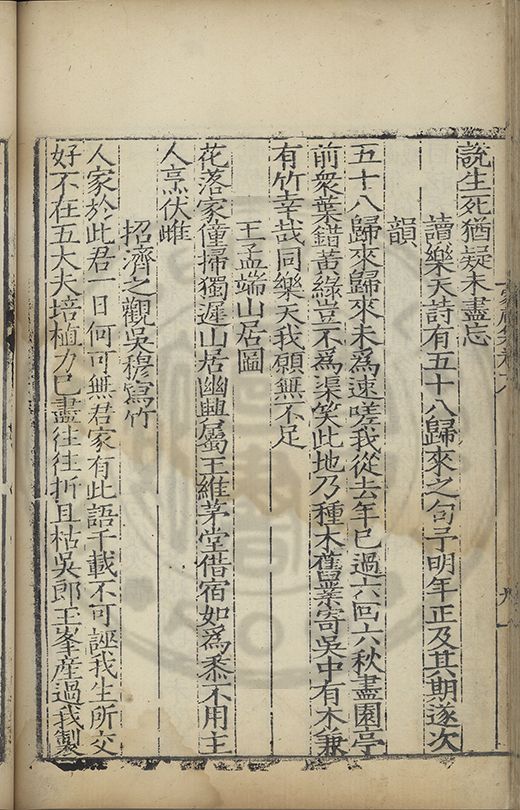 說生死猶疑未盡忘
讀樂天詩有五十八歸來之句予明年正及其期遂次
韻
五十八歸來歸來未為速嗟我從去年已過六百六秋盡園亭
前衆葉錯黃綠豈不為渠笑此地乃種木舊業寄吳中有木兼
有竹幸哉同樂天我願無不足
王孟端山居圖
花落家僮掃獨遲山居幽興屬王維茅堂借宿如為黍不用主
人烹伏雌
招濟之觀吳穆寫竹
人家於此君一日何可無君家有此語千載不可誣我生所交
好不在五大夫培植力已盡往往折且枯吳郎玉峯產過我製